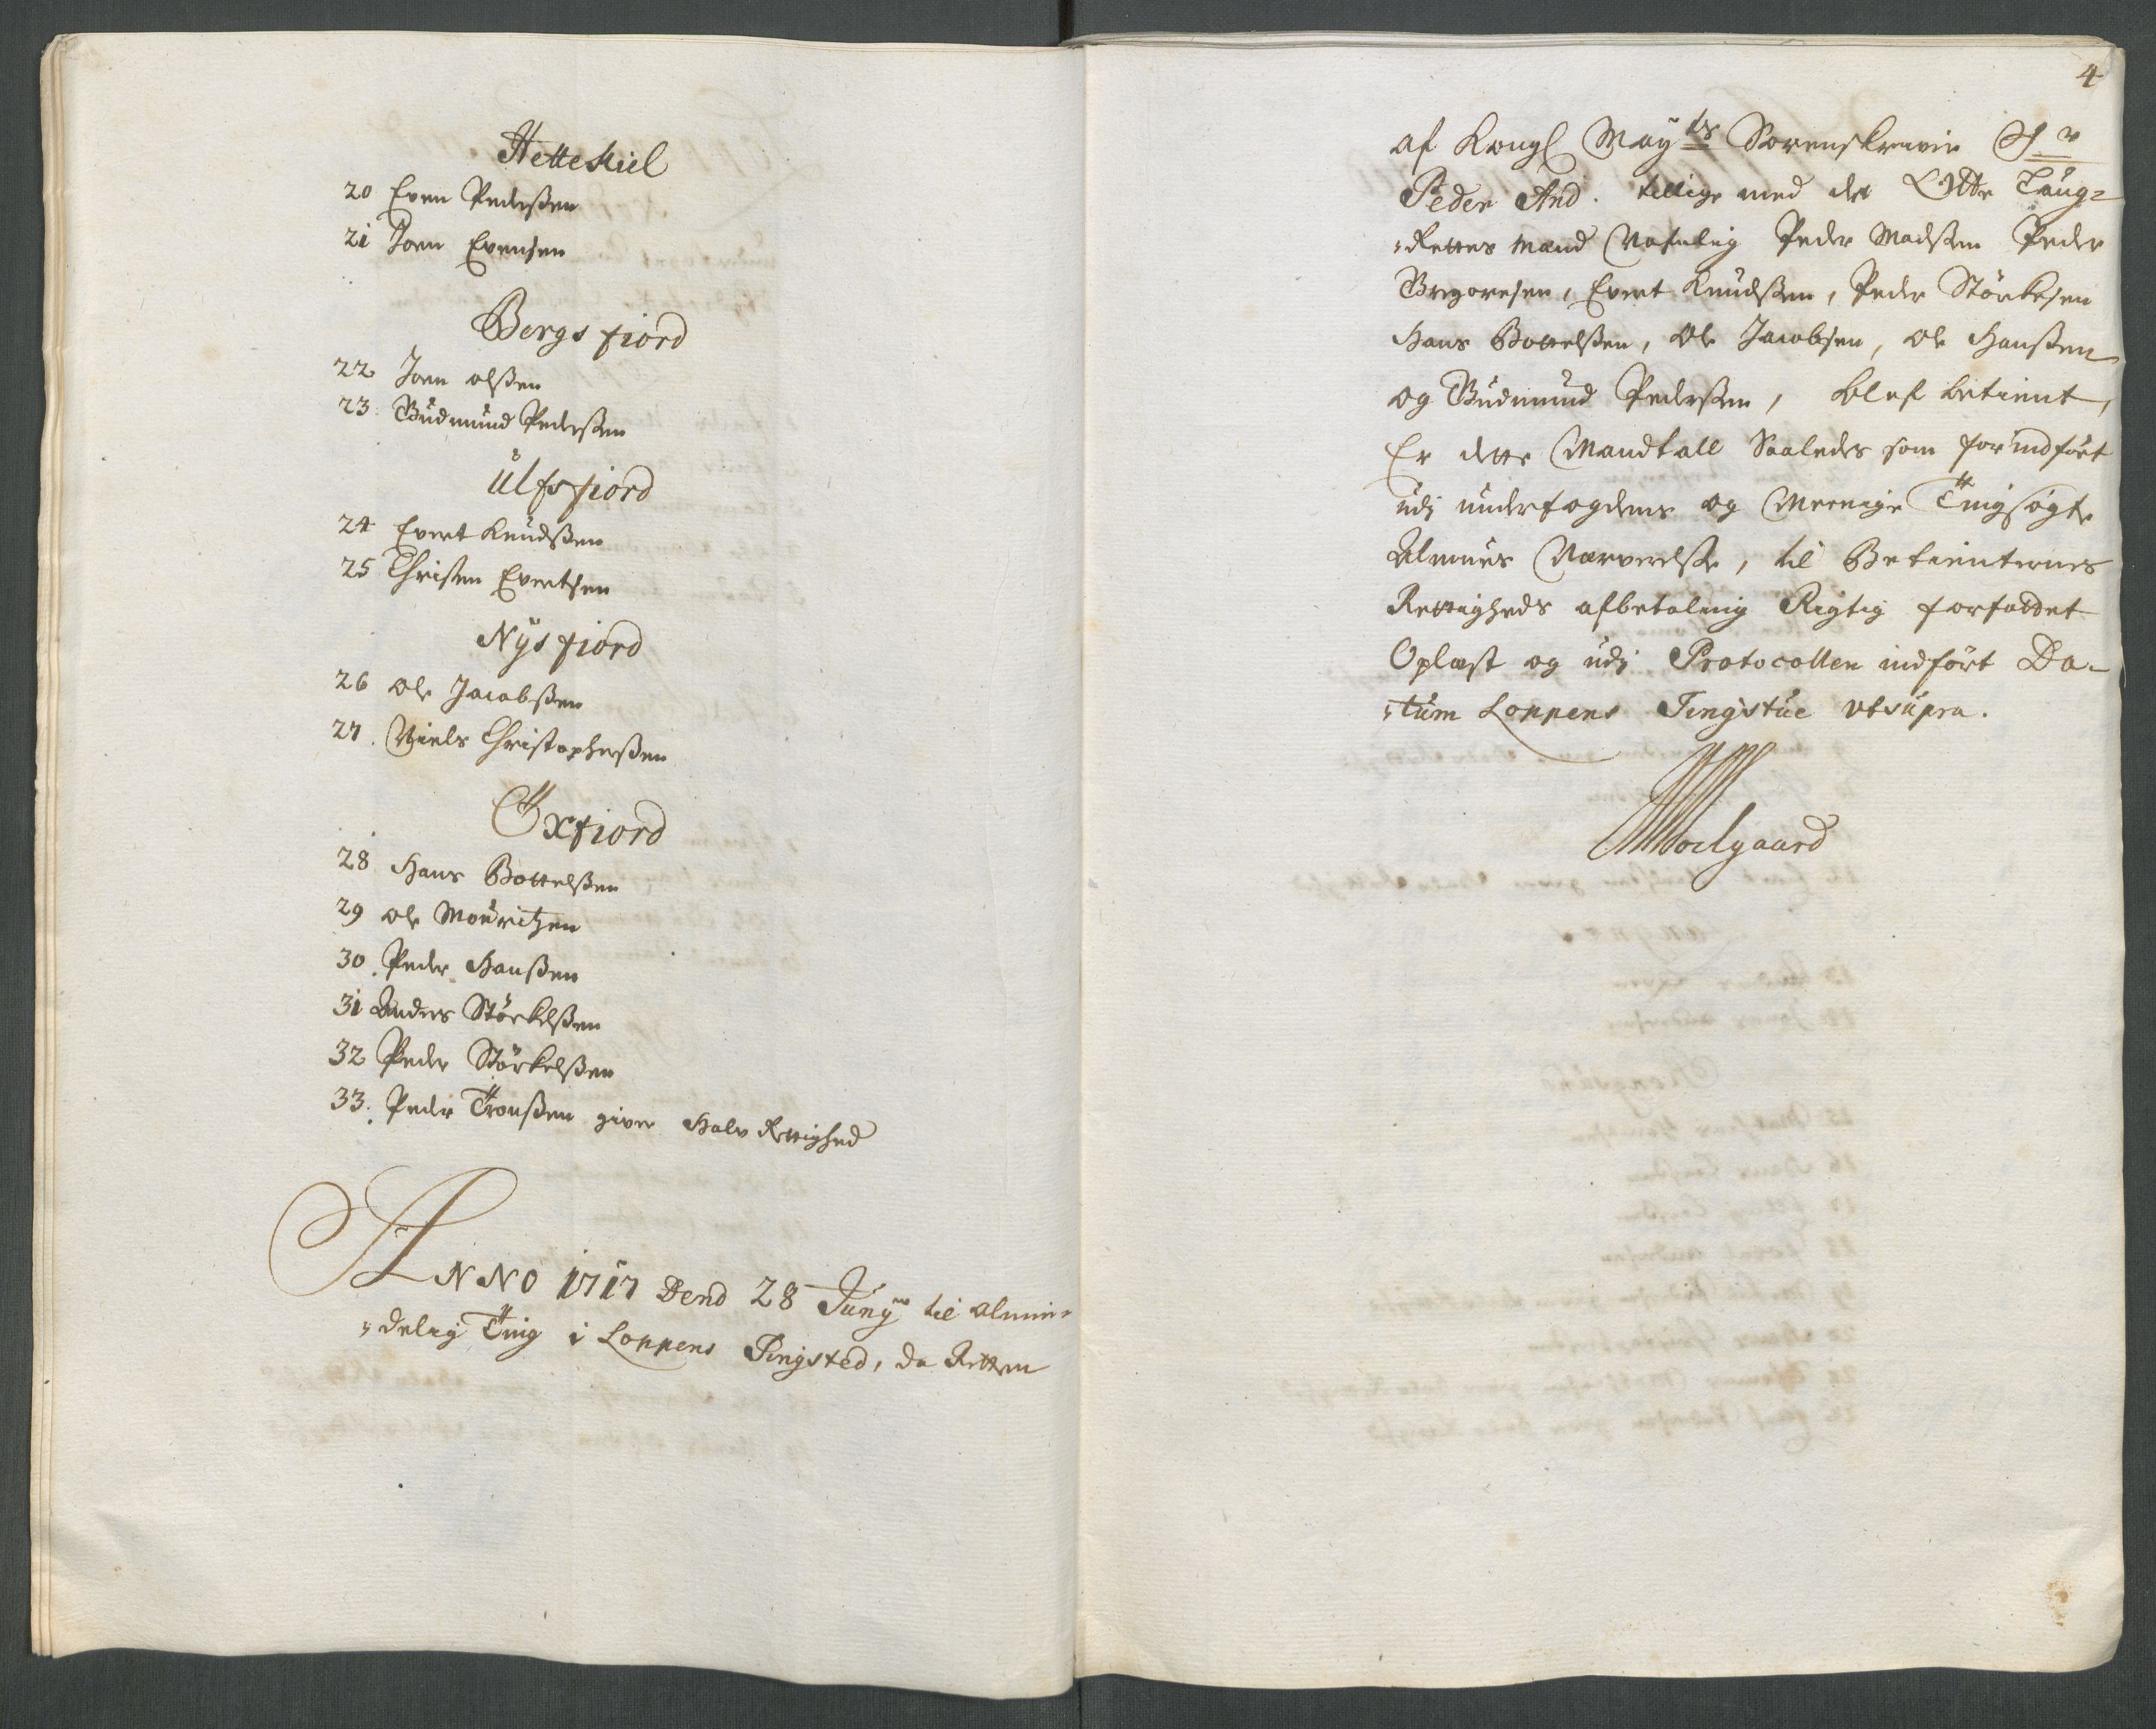 Hetteskiel
20 Even Pederßen
21 Joen Evensen
Bergsfiord
22 Joen olßen
23 Gudmund Pederßen
ülfsfiord
24 Evert Knudßen
25 Christen Evertsen
Nÿsfiord
26 Ole Jacobßen
27. Niels Christopherßen
Öxfiord
28 Hans Bottelßen
29 Ole Mouritzen
30. Peder Hanßen
31 Anders Störkelßen
32 Peder Störkelßen
33. Peder Tronßen giver Halv Rettighed
ANNO 1717 Dend 28 Juny til almin-
delig Ting i Loppens Tingsted, da Retten
4
af Kongl Mayts Sorenskriver Sr
Peder And. tillige med de Otte Laug-
Rettes Mænd Nafnlig Peder Madßen Peder
Gregoresen, Evert Knudßen, Peder Störkesen
Hans Bottelßen, Ole Jacobsen, Ole Hanßen
og Gudmund Pederßen, blef betient,
Er dette Mandtall Saaledes som forindfört
udj underfogdens og Meenige Tingsøgte
Almues Nærverelße, til Betienternes
Rettigheds afbetaling Rigtig forfattet
Oplæst og udj Protocollen indfört Da-
tum Loppens Tingstue utsupra.